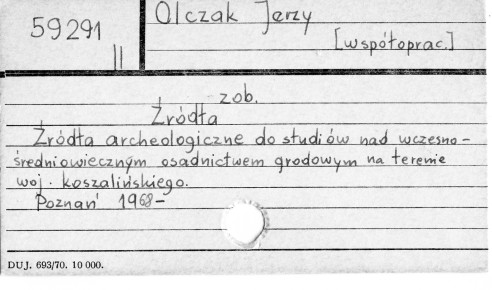 59291
II
Olczak Jerzy
[współoprac.]
zob.
Źródła
Źródła archeologiczne do studiów nad wczesno-
średniowiecznym osadnictwem grodowym na terenie
woj. koszalińskiego.
Poznań 1968-
DUJ. 693/70. 10 000.